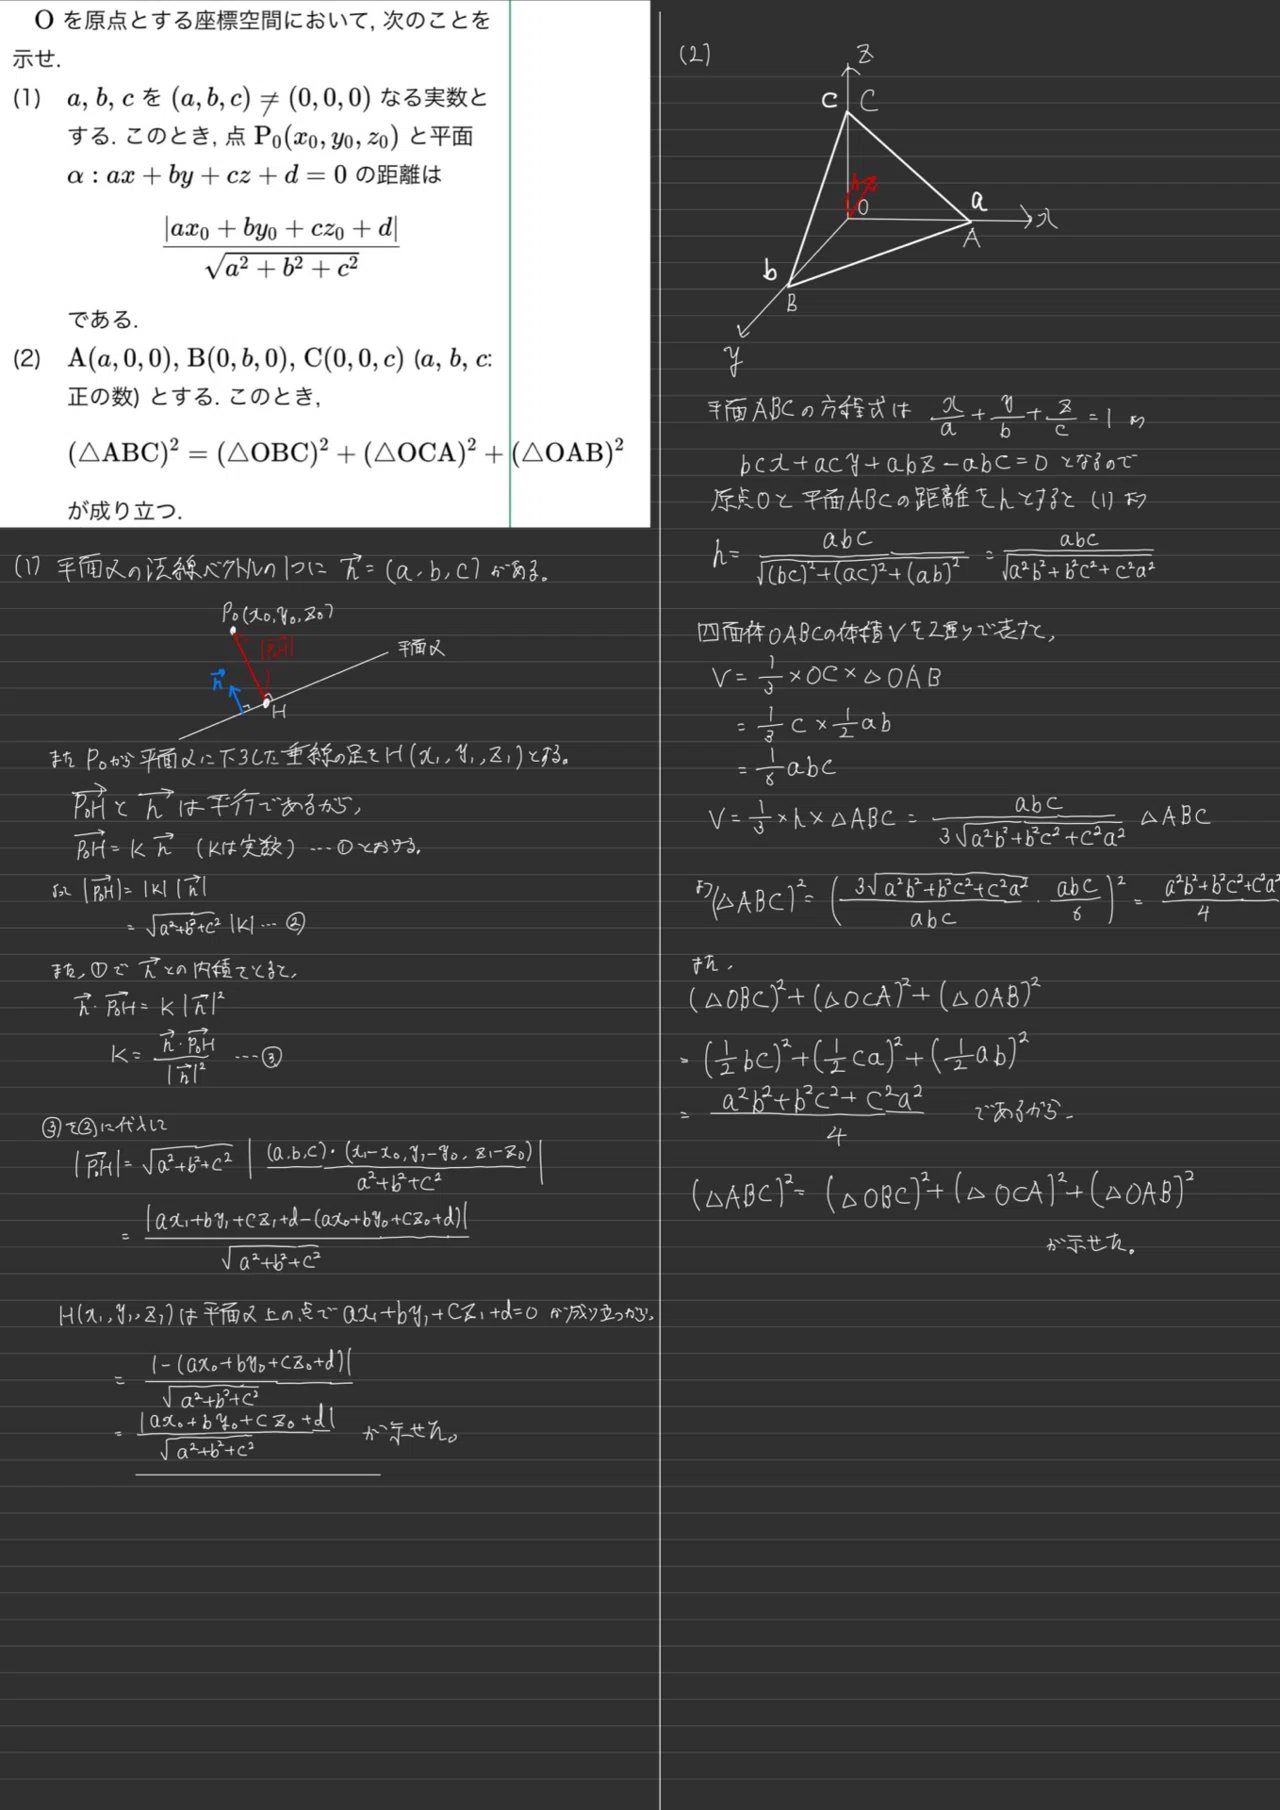 O を原点とする座標空間において, 次のことを
示せ.
(1) a, b, c を (a, b, c) ≠ (0, 0, 0) なる実数と
する. このとき, 点 P₀(x₀, y₀, z₀) と平面
α : ax + by + cz + d = 0 の距離は
|ax₀ + by₀ + cz₀ + d| / √(a² + b² + c²)
である.
(2) A(a, 0, 0), B(0, b, 0), C(0, 0, c) (a, b, c:
正の数) とする. このとき,
(△ABC)² = (△OBC)² + (△OCA)² + (△OAB)²
が成り立つ.
(1) 平面αの法線ベクトルの1つに n→ = (a, b, c) がある。
P₀(x₀, y₀, z₀)
|P₀H→|
平面α
n→
H
また P₀から平面αに下ろした垂線の足を H(x₁, y₁, z₁)とする。
P₀H→ と n→ は平行であるから,
P₀H→ = k n→ (kは実数) … ①とおける。
よって |P₀H→| = |k| |n→|
= √(a²+b²+c²) |k| … ②
また, ①で n→ との内積をとると,
n→・P₀H→ = k |n→|²
k = n→・P₀H→ / |n→|² … ③
③を②に代入して
|P₀H→| = √(a²+b²+c²) | (a,b,c)・(x₁-x₀, y₁-y₀, z₁-z₀) / a²+b²+c² |
= |ax₁+by₁+cz₁+d-(ax₀+by₀+cz₀+d)| / √(a²+b²+c²)
H(x₁, y₁, z₁)は平面α上の点で ax₁+by₁+cz₁+d=0 が成り立つから,
= |-(ax₀+by₀+cz₀+d)| / √(a²+b²+c²)
= |ax₀+by₀+cz₀+d| / √(a²+b²+c²) が示せた。
(2)
z
c C
h
O
a
A
x
b
B
y
平面ABCの方程式は x/a + y/b + z/c = 1 より
bcx+acy+abz-abc=0 となるので
原点Oと平面ABCの距離をhとすると (1)より
h = abc / √((bc)²+(ac)²+(ab)²) = abc / √(a²b²+b²c²+c²a²)
四面体OABCの体積Vを2通りで表すと,
V = 1/3 × OC × △OAB
= 1/3 c × 1/2 ab
= 1/6 abc
V = 1/3 × h × △ABC = abc / 3√(a²b²+b²c²+c²a²) △ABC
よって (△ABC)² = ( 3√(a²b²+b²c²+c²a²) / abc ・ abc / 6 )² = a²b²+b²c²+c²a² / 4
また,
(△OBC)²+(△OCA)²+(△OAB)²
= (1/2 bc)²+(1/2 ca)²+(1/2 ab)²
= a²b²+b²c²+c²a² / 4 であるから,
(△ABC)² = (△OBC)²+(△OCA)²+(△OAB)²
が示せた。